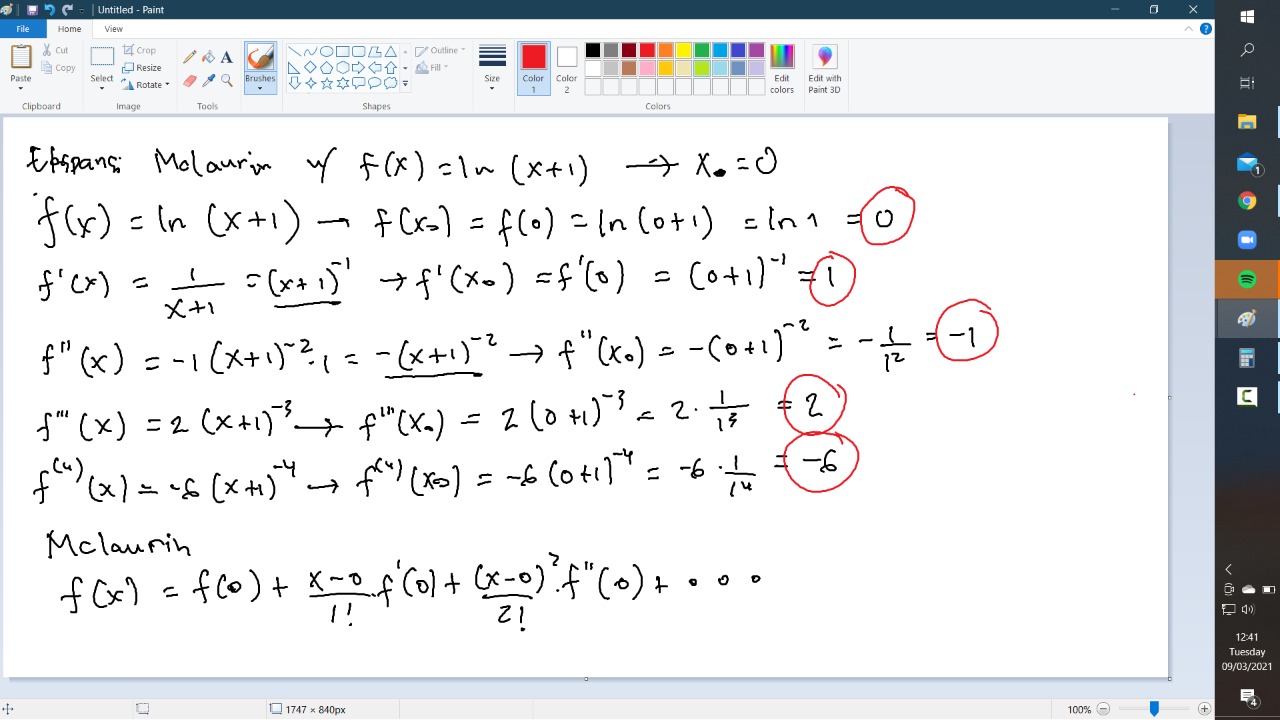 Untitled - Paint
File Home View
Paste
Cut
Copy
Clipboard
Select
Crop
Resize
Rotate
Image
A
Tools
Brushes
Outline
Fill
Shapes
Size
Color 1
Color 2
Edit colors
Colors
Edit with Paint 3D
Ekspansi Mclaurin u/ f(x) = ln (x+1) → x₀ = 0
f(x) = ln (x+1) → f(x₀) = f(0) = ln(0+1) = ln 1 = 0
f'(x) = 1/(x+1) = (x+1)⁻¹ → f'(x₀) = f'(0) = (0+1)⁻¹ = 1
f''(x) = -1(x+1)⁻²·1 = -(x+1)⁻² → f''(x₀) = -(0+1)⁻² = -1/1² = -1
f'''(x) = 2(x+1)⁻³ → f'''(x₀) = 2(0+1)⁻³ = 2·1/1³ = 2
f⁽⁴⁾(x) = -6(x+1)⁻⁴ → f⁽⁴⁾(x₀) = -6(0+1)⁻⁴ = -6·1/1⁴ = -6
Mclaurin
f(x) = f(0) + (x-0)/1!·f'(0) + (x-0)²/2!·f''(0) + ...
1747 × 840px
100%
1
12:41
Tuesday
09/03/2021
4